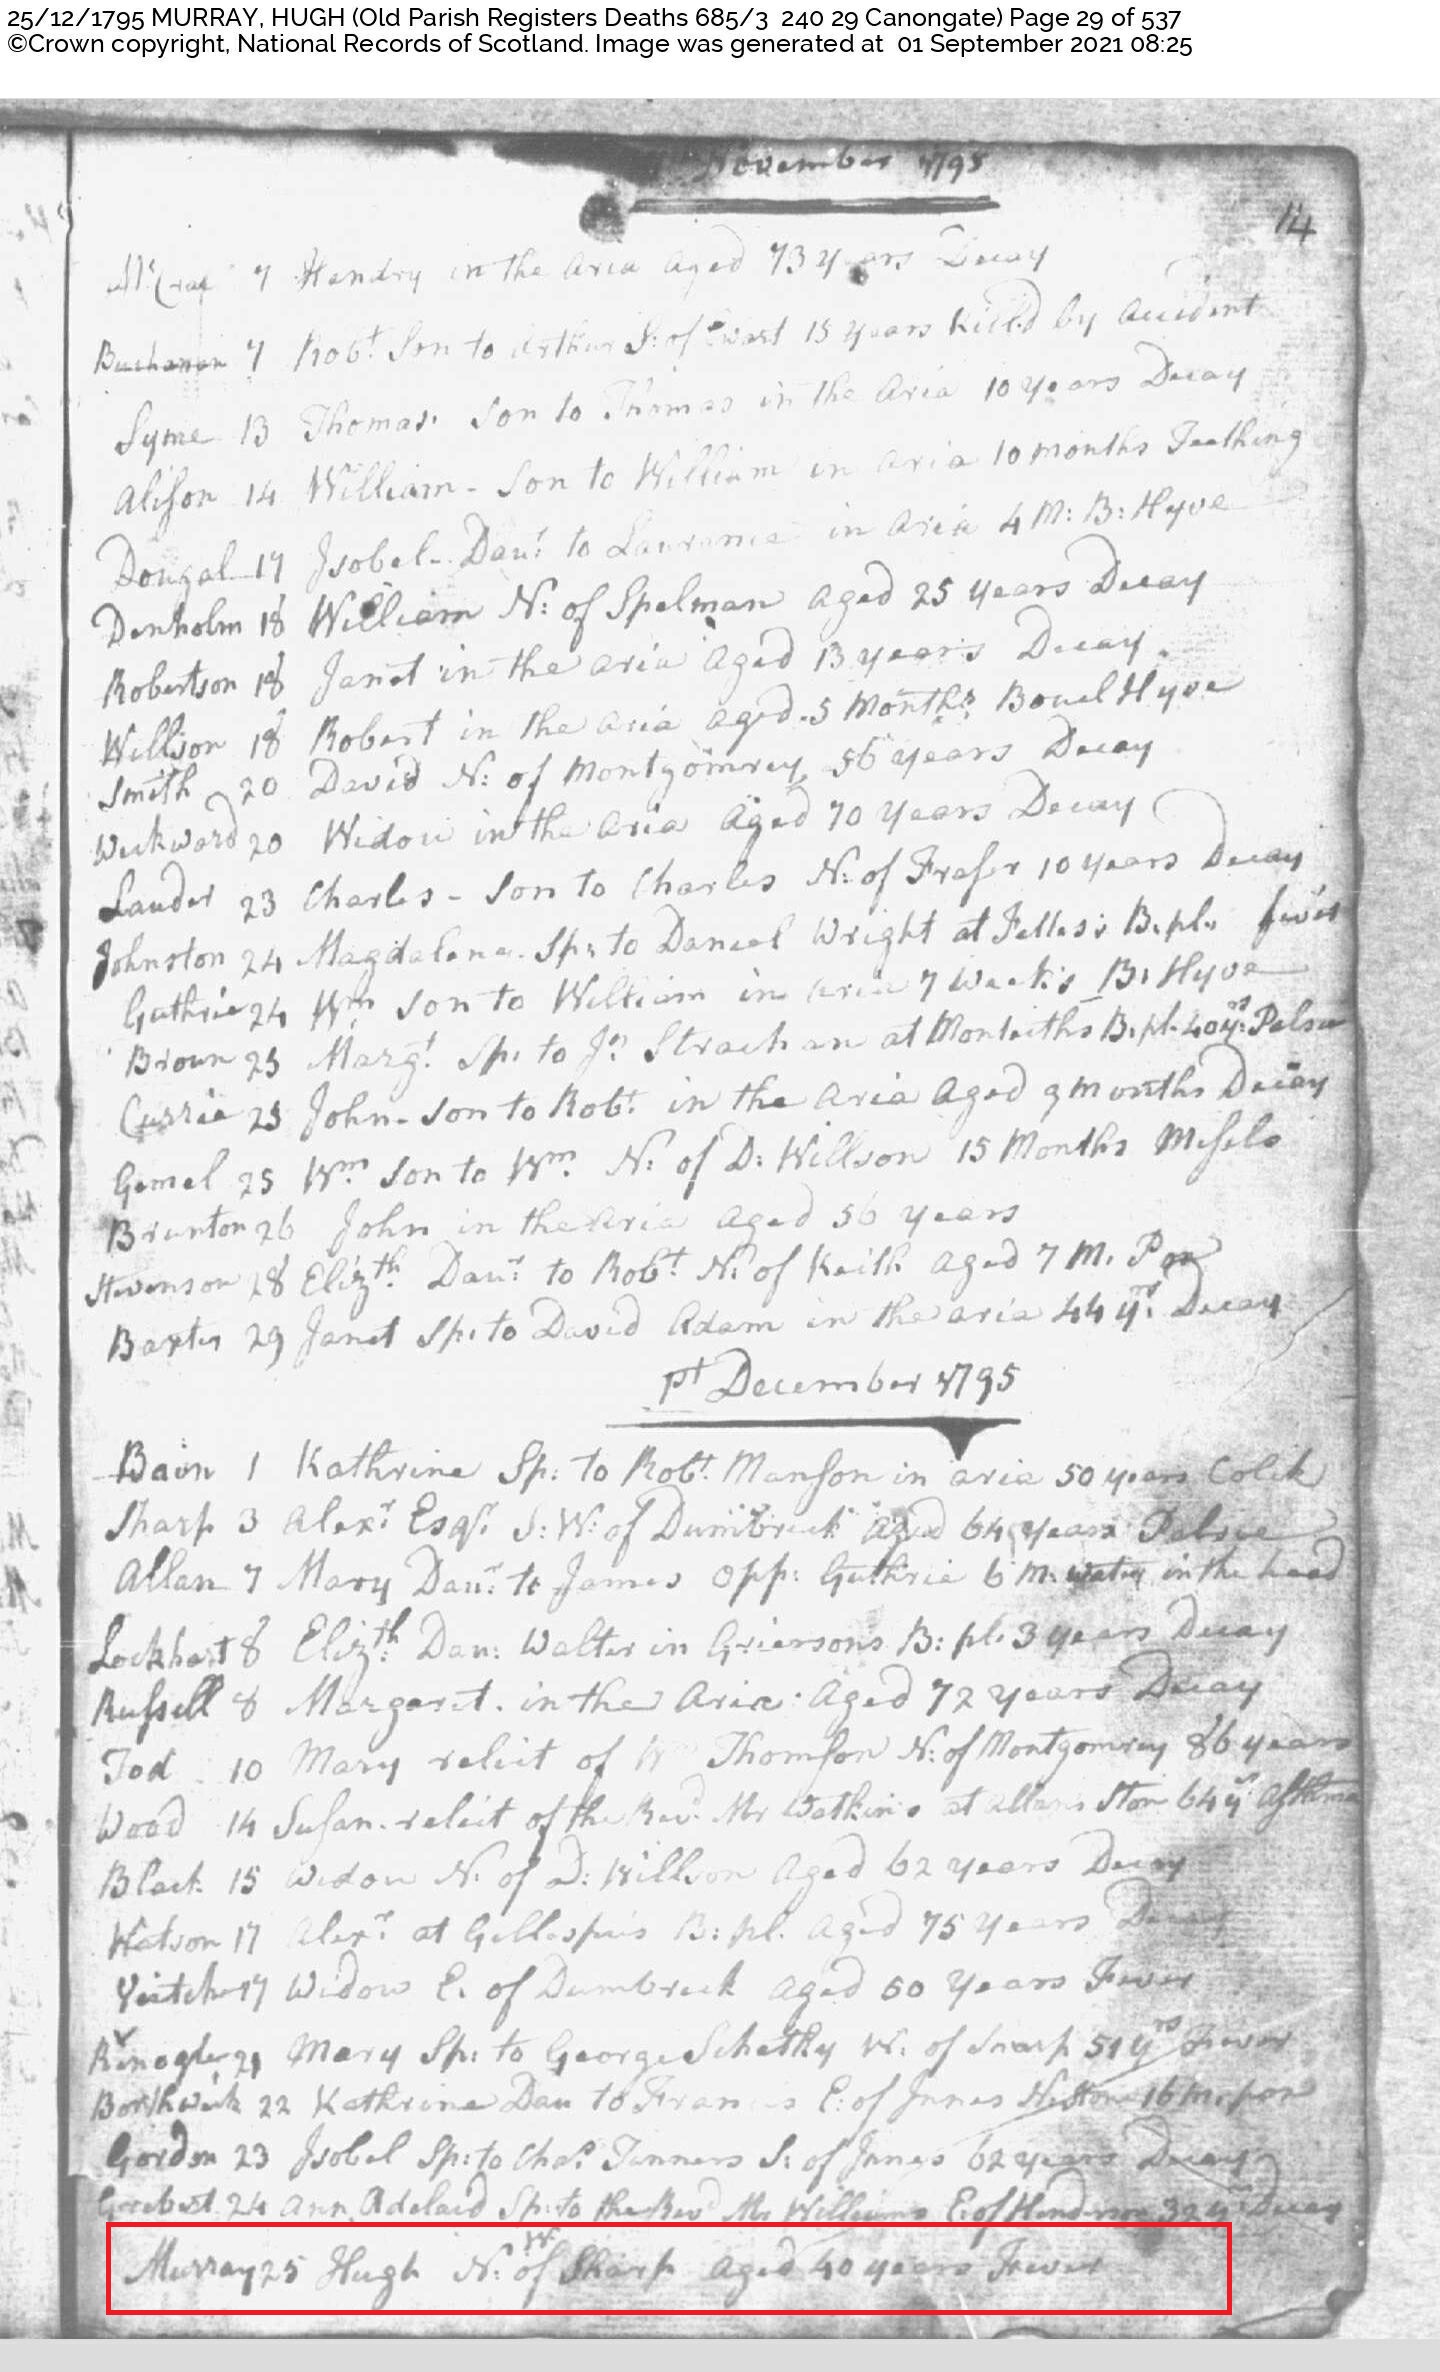 25/12/1795 MURRAY, HUGH (Old Parish Registers Deaths 685/3 240 29 Canongate) Page 29 of 537
©Crown copyright, National Records of Scotland. Image was generated at 01 September 2021 08:25
November 1795
114
McCrae 7 Hendry in the Aria aged 73 years Decay
Buchanan 7 Robt Son to Arthur S: of Ewart 15 years Killd by Accident
Syme 13 Thomas Son to Thomas in the Aria 10 years Decay
Alison 14 William - Son to William in Aria 10 months Teething
Dougal 17 Isobel - Daur to Laurance in Aria 4 M: B: Hyve
Denholm 18 William N: of Spelman Aged 25 years Decay
Robertson 18 Janet in the Aria Aged 13 years Decay
Willson 18 Robert in the Aria aged 5 Months Bouel Hyve
Smith 20 David N: of Montgomrey 56 years Decay
Weckward 20 Widow in the Aria Aged 70 Years Decay
Lauder 23 Charles - Son to Charles N: of Fraser 10 years Decay
Johnston 24 Magdalene Sp: to Daniel Wright at B. pl. fever
Guthrie 24 Wm Son to William in Aria 7 Weeks B: Hyve
Broun 25 Margt Sp: to Jn Strachan at Monteiths B. pl. 40 yrs Palsie
Currie 25 John - Son to Robt in the Aria Aged 9 Months Decay
Gemel 25 Wm Son to Wm N: of D: Willson 15 Months Misels
Brunton 26 John in the Aria aged 56 years
Stevenson 28 Elizth Daur to Robt N: of Keith aged 7 M. Pox
Baxter 29 Janet Sp: to David Adam in the aria 44 yrs Decay
Pt December 1795
Bain 1 Kathrine Sp: to Robt Manson in aria 50 years Colik
Sharp 3 Alexr Esqr S: W: of Dumbreck Aged 64 years Palsie
Allan 7 Mary Daur to James Opp: Guthrie 6 M: water in the head
Lockhart 8 Elizth Dau: Walter in Griersons B: pl. 3 years Decay
Russell 8 Margaret. in the Aria Aged 72 years Decay
Tod 10 Mary relict of Wm Thomson N: of Montgomrey 86 years
Wood 14 Susan - relict of the Revd Mr Watkins at Allans Ston 64 y Asthma
Black 15 Widow N. of D: Willson Aged 62 years Decay
Watson 17 Alexr at Gillespies B: pl. Aged 75 Years Decay
Veitch 17 Widow E. of Dumbreck aged 50 Years Fever
21 Mary Sp: to George Schetky W: of Sharp 51 yrs Fever
Borthwick 22 Kathrine Dau to Francis E: of Innes 16 M. pox
Gordon 23 Isobel Sp: to Chas Tanners S: of Innes 62 years Decay
24 Ann Adelaid Sp: to the Revd Mr Williams E: of Henderson 32 yrs Decay
Murray 25 Hugh N: W: of Sharp aged 40 years Fever